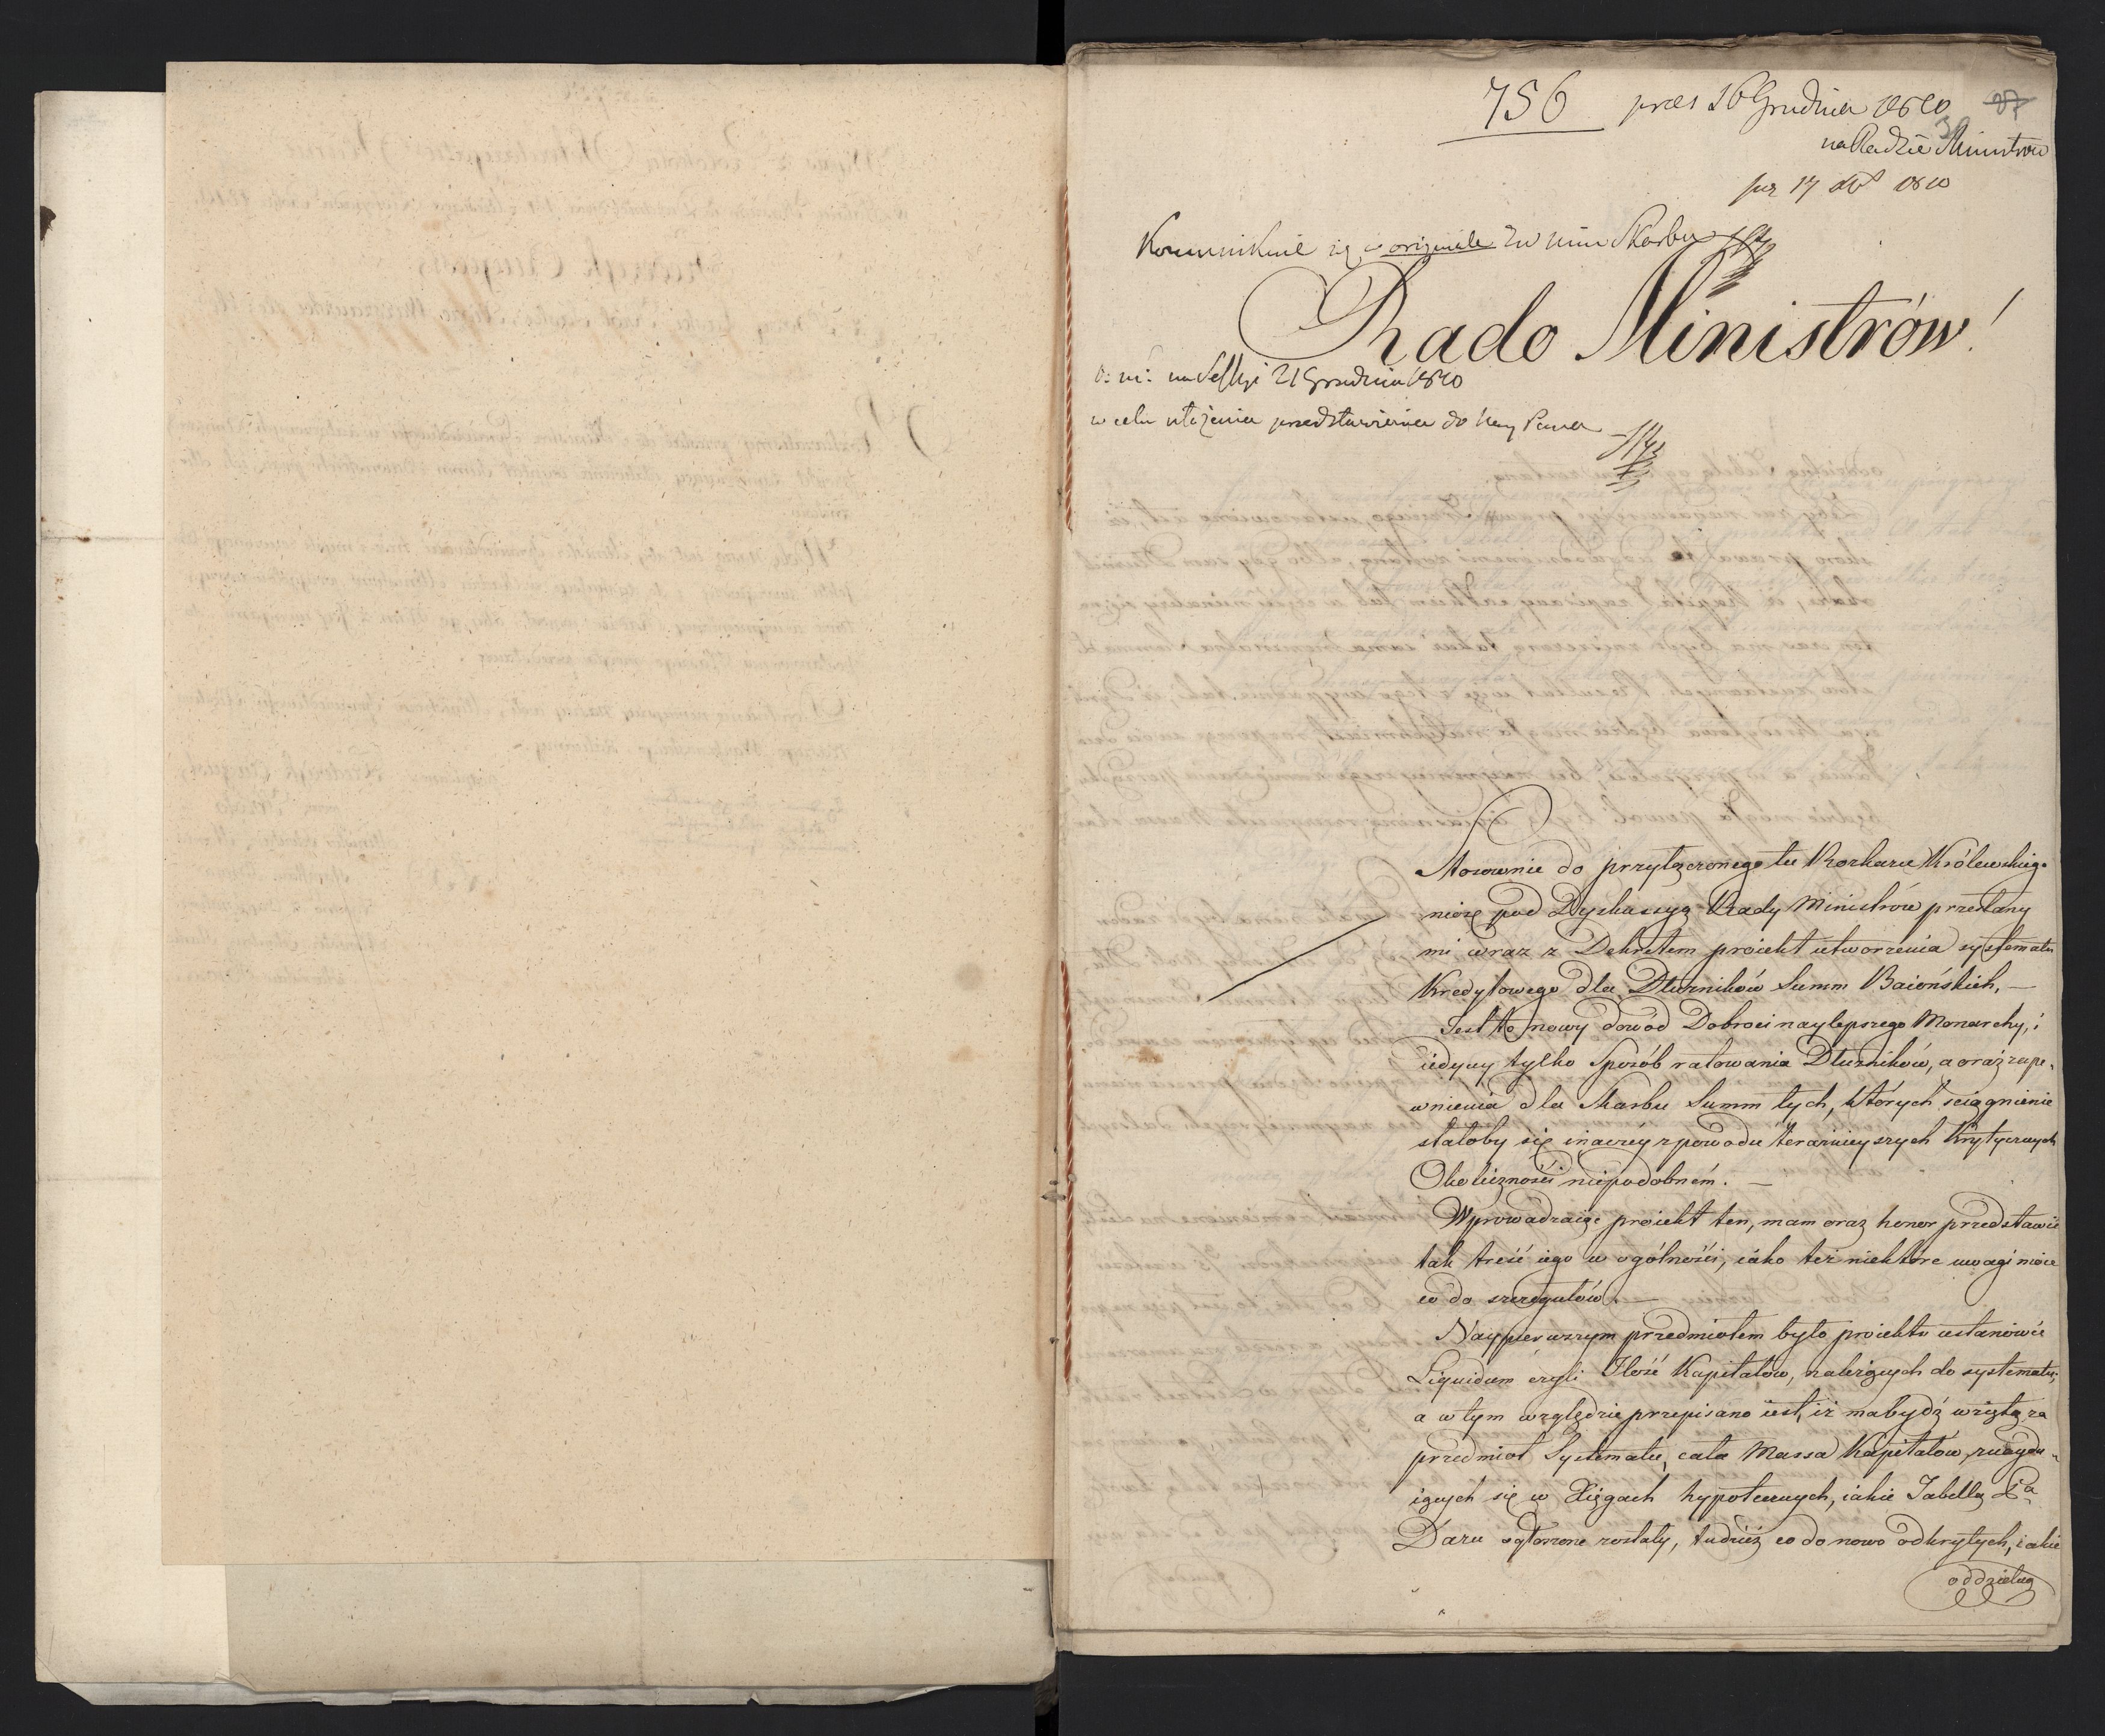 756 pres 16 Grudnia 1810 27
30
na Radzie Ministrow
17 1810
Kommunikuie się w originale Skarbu
Rado Ministrów!
na Sessyi 21 Grudnia 1810
w celu ułożenia przedstawienia do Nay Pana
Stosownie do przyłączonego tu Rozkazu Królewskiego
niosę pod Dyskussyą Rady Ministrów przesłany
mi wraz z Dekretem proiekt utworzenia systematu
Kredytowego dla Dłużników Summ Baiońskich, —
Jest to nowy dowód Dobroci naylepszego Monarchy, i
iedyny tylko Sposób ratowania Dłużników, a oraz zape-
wnienia dla Skarbu Summ tych, których ściągnienie
stałoby się inaczéy z powodu teraznieyszych Krytycznych
Okoliczności niepodobném. —
Wprowadzaiąc proiekt ten, mam oraz honor przedstawić
tak treść iego w ogólności, iako też niektóre uwagi moie
co do szczegułów. —
Naypierwszym przedmiotem było proiektu ustanowić
Liquidum czyli Ilość Kapitałów, należących do systematu;
a w tym względzie przepisano iest, iż ma bydź wzięta za
przedmiot Systematu, cała Massa Kapitałów, znaydu-
iących się w Xięgach hypotecznych, iakie Tabellą Pa
Daru ogłoszone zostały, tudzież co do nowo odkrytych, iakie
oddzielną